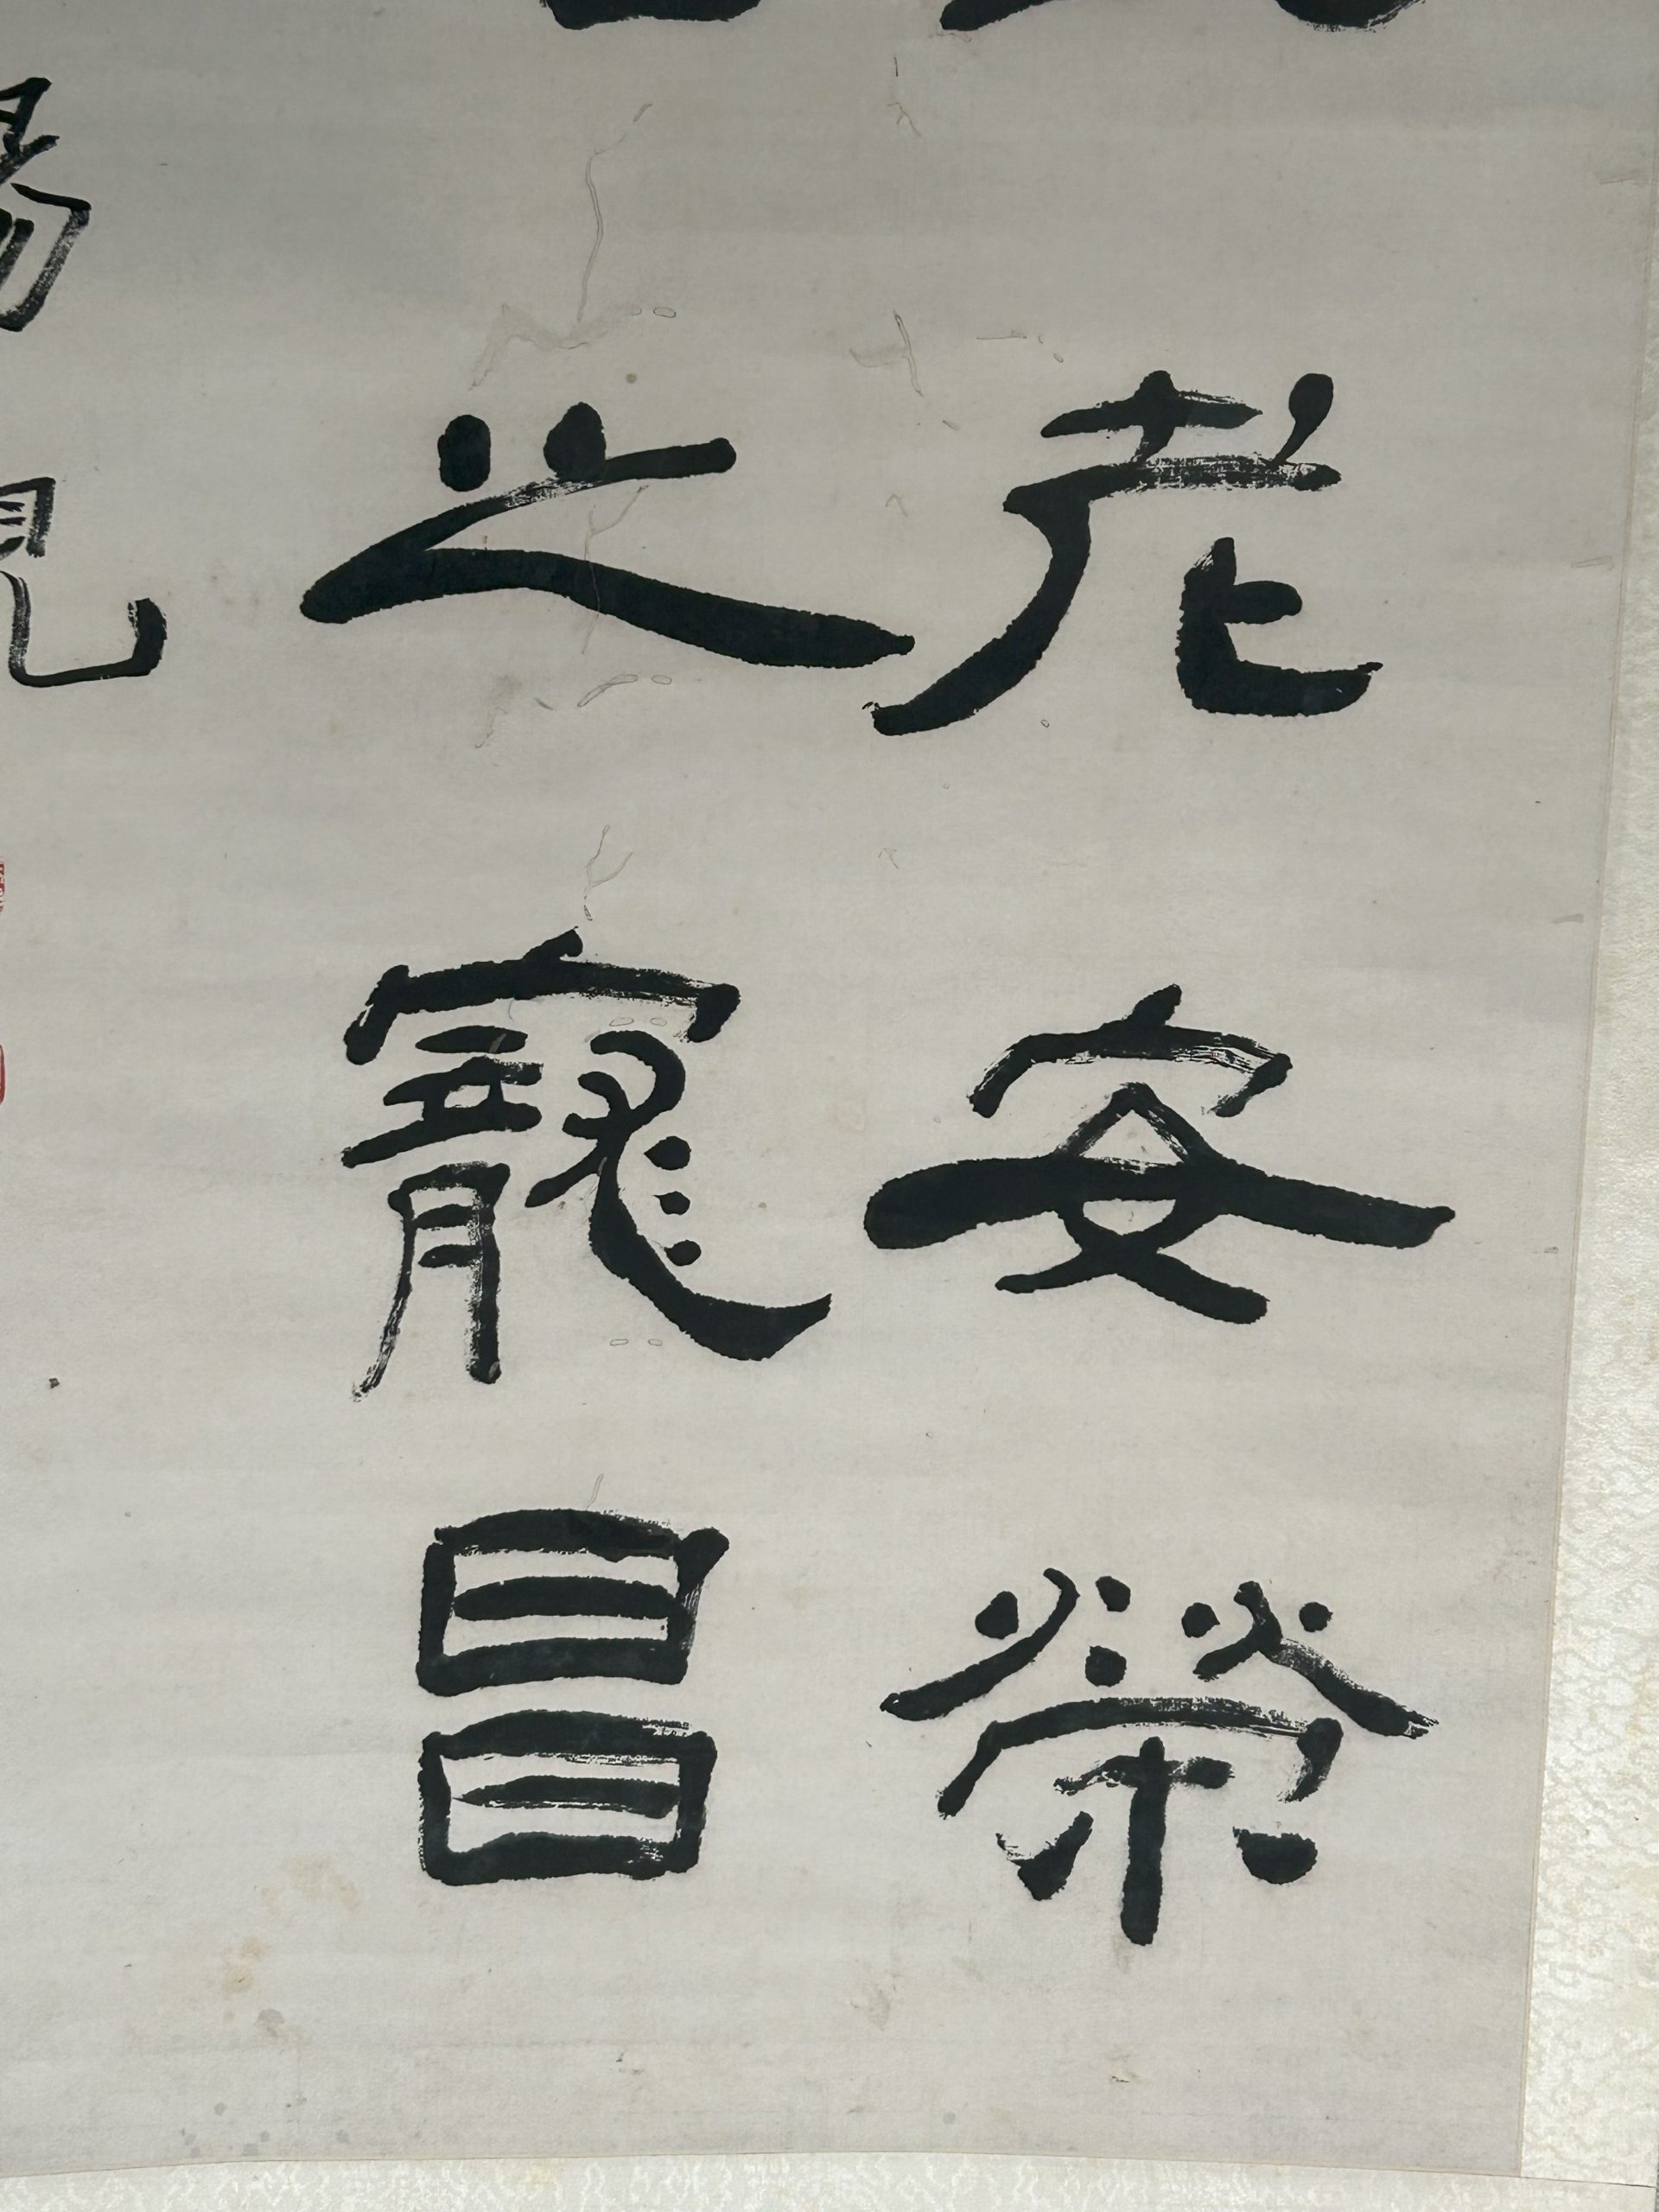 老安榮
之寵昌